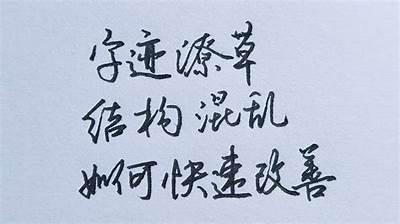 字迹潦草
结构混乱
如何快速改善